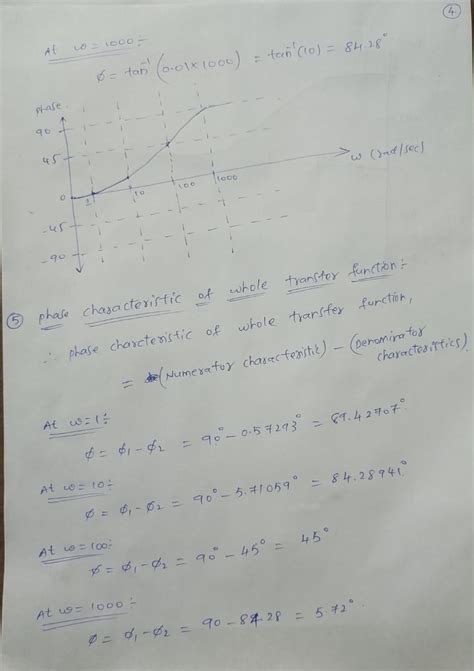 4
At ω = 1000 :-
φ = tan⁻¹ (0.01 × 1000) = tan⁻¹ (10) = 84.28°
phase
90
45
0
1
10
100
1000
ω (rad/sec)
-45
-90
5 phase characteristic of whole transfer function :-
∴ phase charcteristic of whole transfer function,
= (Numerator characteristic) - (Denominator characteristics)
At ω = 1 :-
φ = φ₁ - φ₂ = 90° - 0.57293° = 89.42707°
At ω = 10 :-
φ = φ₁ - φ₂ = 90° - 5.71059° = 84.28941°
At ω = 100 :-
φ = φ₁ - φ₂ = 90° - 45° = 45°
At ω = 1000 :-
φ = φ₁ - φ₂ = 90 - 84.28 = 5.72°.